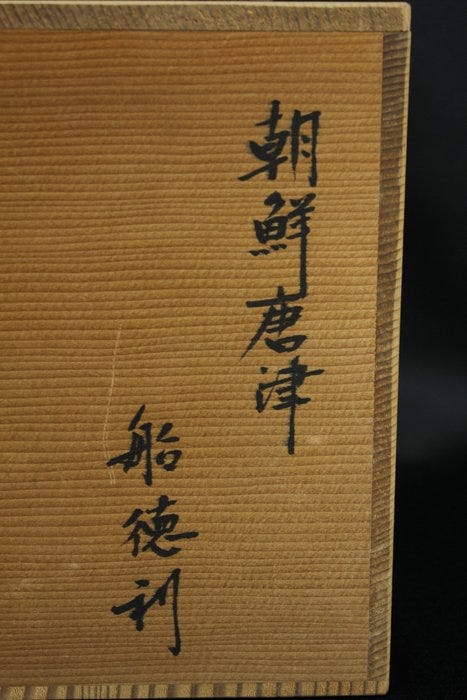 朝鮮唐津
船徳利